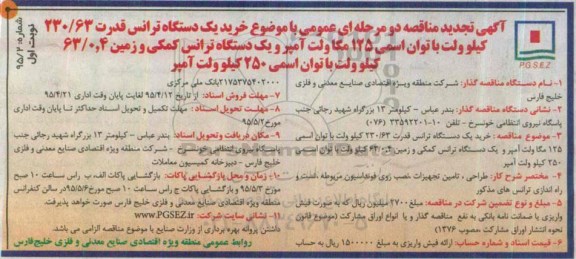 آگهی تجدید مناقصه دو مرحله ای عمومی با موضوع خرید یک دستگاه ترانس قدرت ۲۳۰/۶۳
کیلو ولت با توان اسمی ۱۲۵ مگا ولت آمپر و یک دستگاه ترانس کمکی و زمین ۶۳/۰٫۴
کیلو ولت با توان اسمی ۲۵۰ کیلو ولت آمپر
شماره: ۹۵/۲
نوبت اول
P.G.S.E.Z
۱- نام دستگاه مناقصه گذار: شرکت منطقه ویژه اقتصادی صنایع معدنی و فلزی
خلیج فارس
۲- نشانی دستگاه مناقصه گذار: بندر عباس - کیلومتر ۱۳ بزرگراه شهید رجائی جنب
پاسگاه نیروی انتظامی خونسرخ - تلفن ۱۰-۳۳۵۹۲۲۰۱ (۰۷۶)
۳- موضوع مناقصه: خرید یک دستگاه ترانس قدرت ۲۳۰/۶۳ کیلو ولت با توان اسمی
۱۲۵ مگا ولت آمپر و یک دستگاه ترانس کمکی و زمین ۶۳/۰٫۴ کیلو ولت با توان اسمی
۲۵۰ کیلو ولت آمپر
۴- مختصر شرح کار: طراحی، تامین تجهیزات نصب روی فونداسیون مربوطه، تست و
راه اندازی ترانس های مذکور
۵- مبلغ و نوع تضمین شرکت در مناقصه: مبلغ ۲۷۰۰ میلیون ریال که به صورت فیش
واریزی یا ضمانت نامه بانکی به نفع مناقصه گذار و یا انواع اوراق مشارکت (موضوع قانون
نحوه انتشار اوراق مشارکت مصوب ۱۳۷۶)
۶- قیمت اسناد و شماره حساب: ارائه فیش واریزی به مبلغ ۱۵۰۰۰۰۰ ریال به حساب
۲۱۷۵۳۷۵۴۰۲۰۰۰ بانک ملی مرکزی
۷- مهلت فروش اسناد: از تاریخ ۹۵/۴/۱۲ لغایت پایان وقت اداری ۹۵/۴/۲۱
۸- مهلت تحویل اسناد: مهلت تکمیل و تحویل اسناد حداکثر تا پایان وقت اداری
مورخ ۹۵/۵/۲
۹- مکان دریافت و تحویل اسناد: بندر عباس - کیلومتر ۱۳ بزرگراه شهید رجائی جنب
پاسگاه نیروی انتظامی - شرکت منطقه ویژه اقتصادی صنایع معدنی و فلزی
خلیج فارس - دبیرخانه کمیسیون معاملات
۱۰- زمان و محل بازگشایی پاکات: بازگشایی پاکات الف، ب راس ساعت ۱۰ صبح
مورخ ۹۵/۵/۳ و بازگشایی پاکات ج راس ساعت ۱۰ صبح مورخ ۹۵/۵/۶ در سالن کنفرانس
شرکت منطقه ویژه اقتصادی صنایع معدنی و فلزی خلیج فارس صورت خواهد پذیرفت.
۱۱- نشانی سایت شرکت: www.PGSEZ.ir
داشتن پروانه بهره برداری از وزارت صنایع با موضوع مناقصه الزامی می باشد.
روابط عمومی منطقه ویژه اقتصادی صنایع معدنی و فلزی خلیج فارس